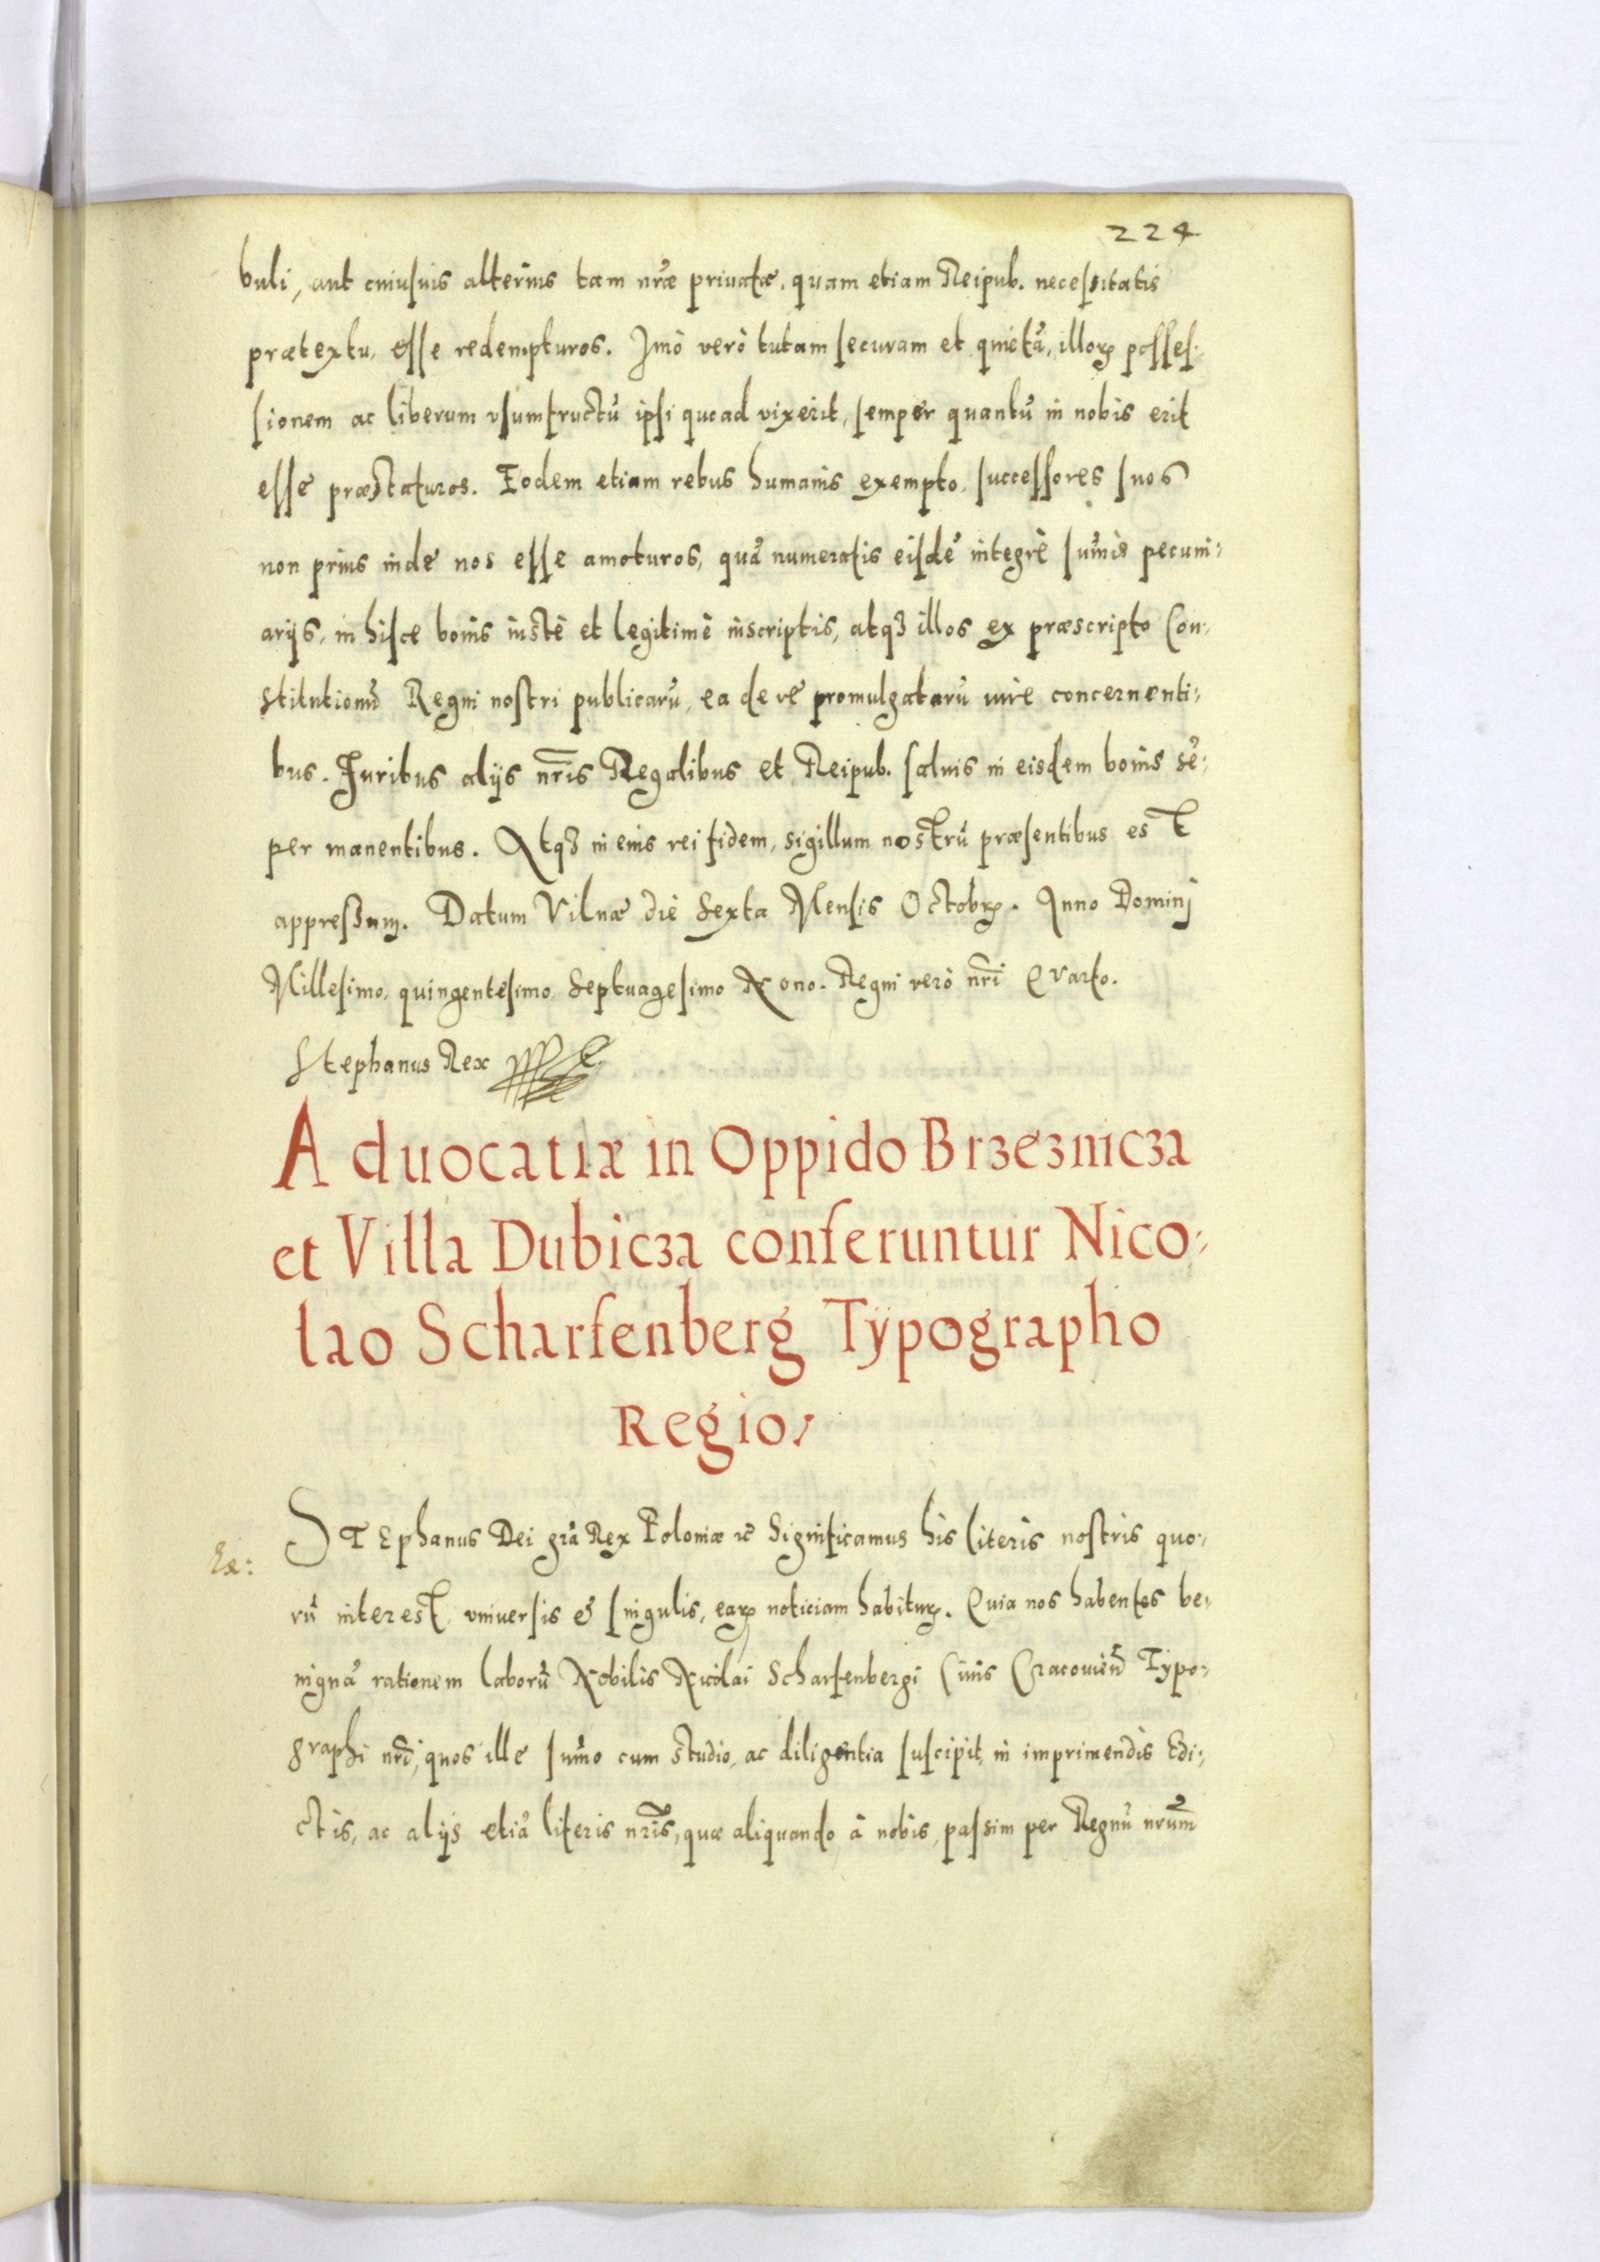 224
buli, aut cuiusuis alterius tam nr̃æ priuatæ, quam etiam Reipub. necessitatis
prætextu, esse redempturos. Imò verò tutam securam et quietã, illorꝝ posses-
sionem ac liberum vsumfructũ ipsi quoad vixerit, semper quantũ in nobis erit
esse præstaturos. Eodem etiam rebus humanis exempto, successores suos
non prius inde nos esse amoturos, quã numeratis eisdẽ integrè sum̃is pecuni-
arijs, in hisce bonis iustè et legitimè inscriptis, atqꝫ illos ex præscripto Con-
stitutionũ Regni nostri publicarũ, ea de re promulgatarũ iure concernenti-
bus. Iuribus alijs nr̃is Regalibus et Reipub. saluis in eisdem bonis sẽ-
per manentibus. Atqꝫ in eius rei fidem, sigillum nostrũ præsentibus est
appressum. Datum Vilnæ die sexta Mensis Octobrꝭ. Anno Dominj
Millesimo, quingentesimo, septuagesimo Nono. Regni verò nr̃i Quarto.
Stephanus Rex
Aduocatiæ in Oppido Brzeznicza
et Villa Dubicza conferuntur Nico-
lao Scharfenberg Tÿpographo
Regio.
Ex:
STEphanus Dei grã Rex Poloniæ ꝛc̃ Significamus his literis nostris quo-
rũ interest, vniuersis & singulis, earꝝ noticiam habiturꝭ. Quia nos habentes be-
nignã rationem laborũ Nobilis Nicolai Scharfenbergi Ciuis Cracouieñ Typo-
graphi nr̃i, quos ille sum̃o cum studio, ac diligentia suscipit, in imprimendis Edi-
ctis, ac alijs etiã literis nr̃is, quæ aliquando à nobis, passim per Regnũ nr̃um